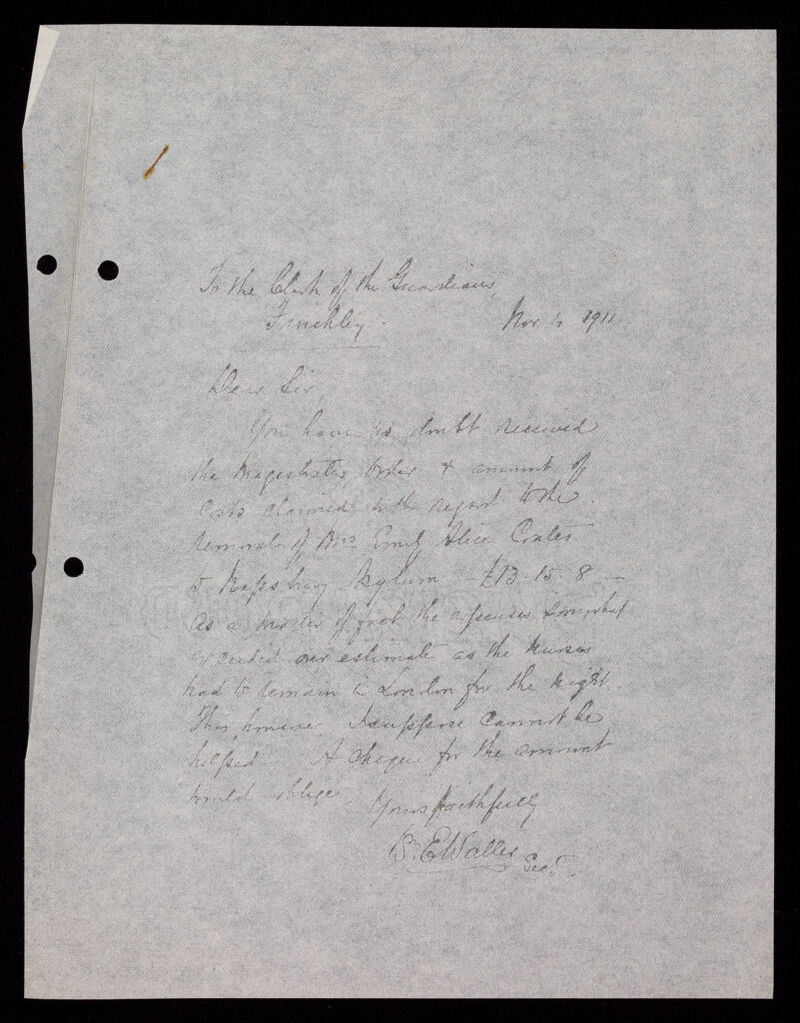 To the Clerk of the Guardians,
Finchley.
Nov. 1911
Dear Sir,
You have no doubt received
the Magistrates order & amount of
costs claimed with regard to the
removal of Mrs Emily Alice Coates
to Napsbury Asylum £13-15-8 —
As a matter of fact the expenses somewhat
exceeded our estimate as the nurses
had to remain in London for the night.
This however I suppose cannot be
helped. A cheque for the amount
would oblige.
Yours faithfully
B. E Waller
Secy.